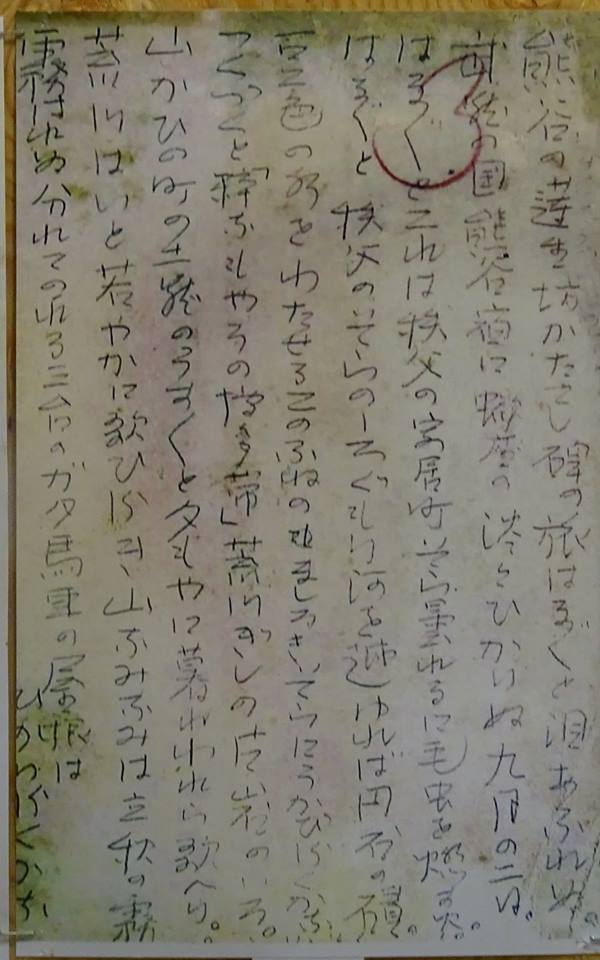 熊谷の蓮生坊がたてし碑の旅はるばると泪あふれぬ。
武蔵の国熊谷宿に蠍座の淡々ひかりぬ九月の二日。
はるばるとこれは秩父の寄居町そら曇れるに毛虫を燃す火。
はるばると秩父のそらのしろぐもり河を越ゆれば円石の磧。
豆色の水をわたせるこのふねのましろきそらにうかび行くかな
つくづくと「粋なもやうの博多帯」荒川ぎしの片岩のいろ。
山かひの町の土蔵のうすうすと夕もやに暮れわれら歌へり。
荒川はいと若やかに歌ひ行き山なみなみは立秋の霧
霧はれぬ分れてのれる三台のガタ馬車の屋根は
ひかり行くかな